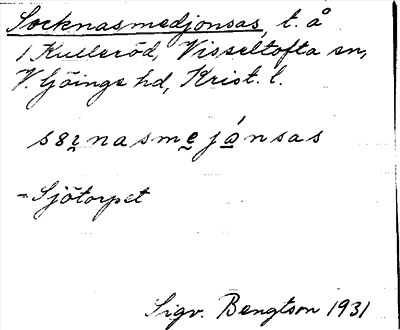 Socknasmedjonsas, t. å
1 Kulleröd, Visseltofta sn,
V. Göinge hd, Krist. l.
= Sjötorpet
Sigv. Bengtson 1931